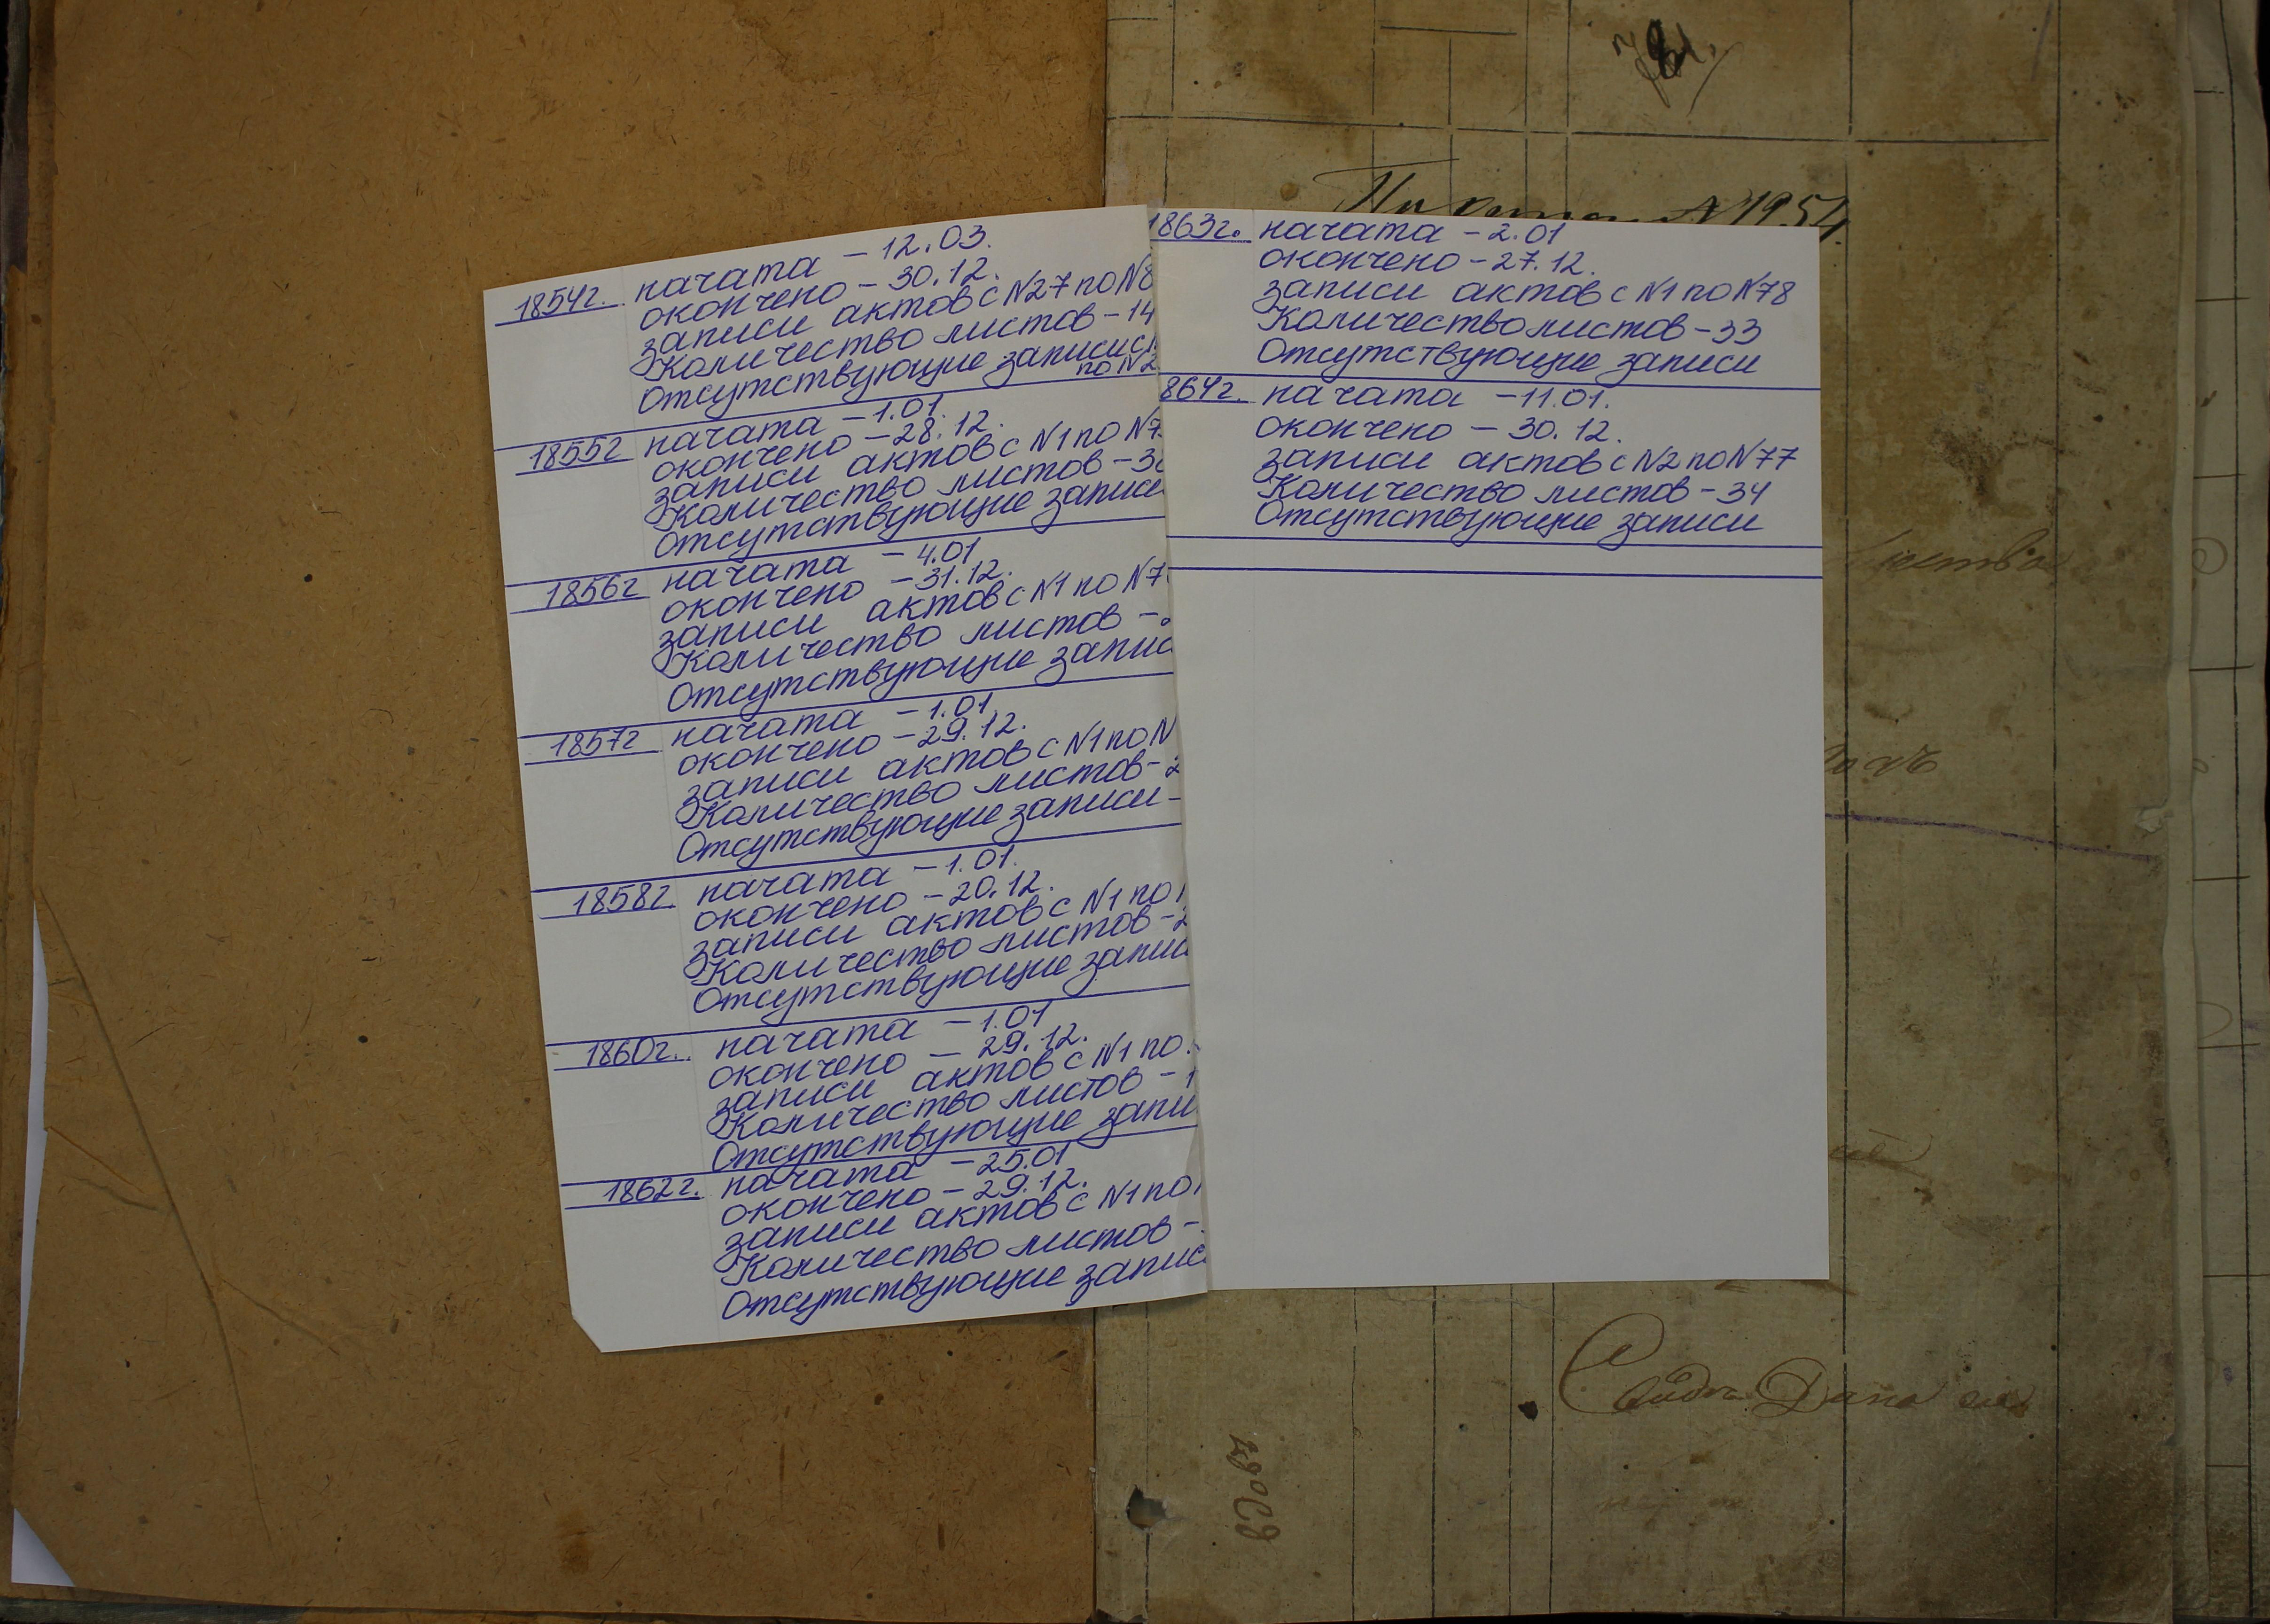 1854г. начата – 12.03.
окончено – 30.12.
записи актов с N27 по N8
Количество листов – 14
Отсутствующие записи с
по N2
1855г начата – 1.01.
окончено – 28.12.
записи актов с N1 по N7
Количество листов – 3
Отсутствующие записи
1856г начата – 4.01
окончено – 31.12.
записи актов с N1 по N7
Количество листов –
Отсутствующие запис
1857г начата – 1.01
окончено – 29.12.
записи актов с N1 по N
Количество листов – 2
Отсутствующие записи –
1858г. начата – 1.01.
окончено – 20.12.
записи актов с N1 по
Количество листов – 2
Отсутствующие запис
1860г.. начата – 1.01
окончено – 29.12.
записи актов с N1 по
Количество листов – 1
Отсутствующие запи
1862г. начата – 25.01
окончено – 29.12.
записи актов с N1 по
Количество листов –
Отсутствующие запис
N1954.
1863г. начата – 2.01
окончено – 27.12.
записи актов с N1 по N78
Количество листов – 33
Отсутствующие записи
864г. начата – 11.01.
окончено – 30.12.
записи актов с N2 по N77
Количество листов – 34
Отсутствующие записи